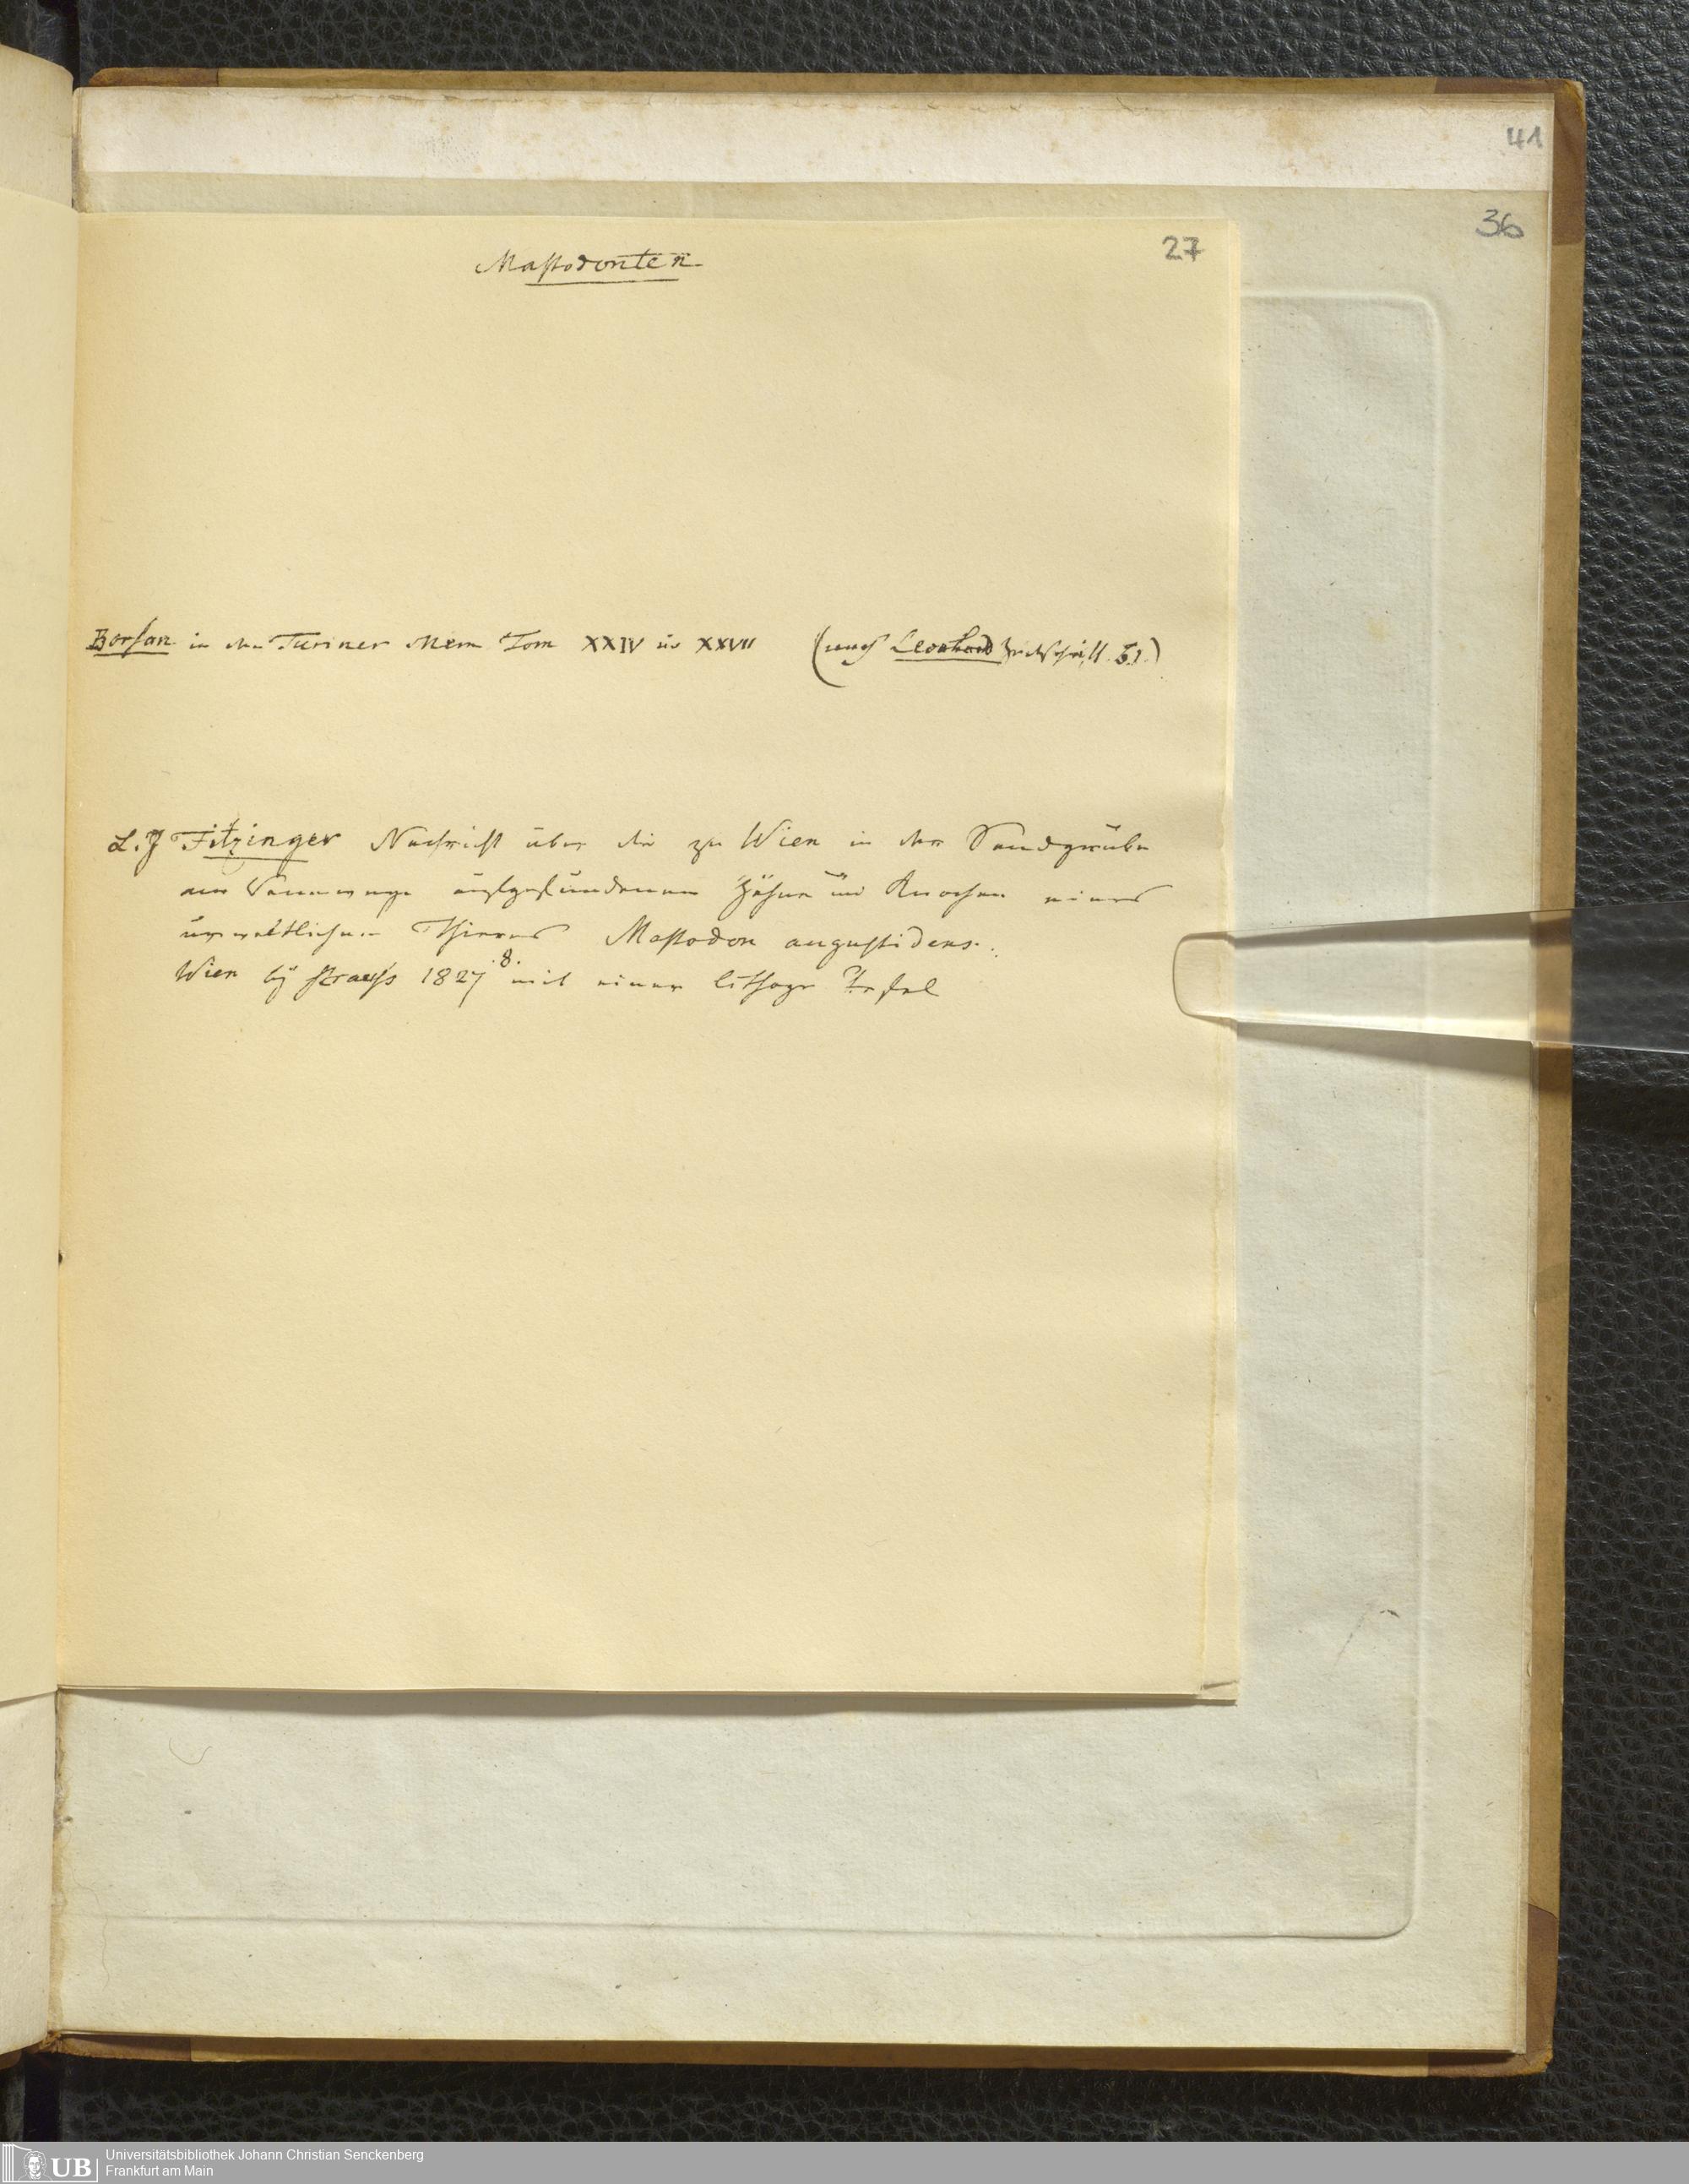 41
36
27
Mastodonten
Borson in den Turiner Mem Tom XXIV u XXVII (auch Leonhard Zeitschrift
L. J Fitzinger Nachricht über die zu Wien in der Sandgrube
am ausgefundenen Zähne und Knochen eines
urweltlichen Thieres Mastodon angustidens.
Wien by Strauss 1827. 8. mit einer lithogr Tafel
UB
Universitätsbibliothek Johann Christian Senckenberg
Frankfurt am Main